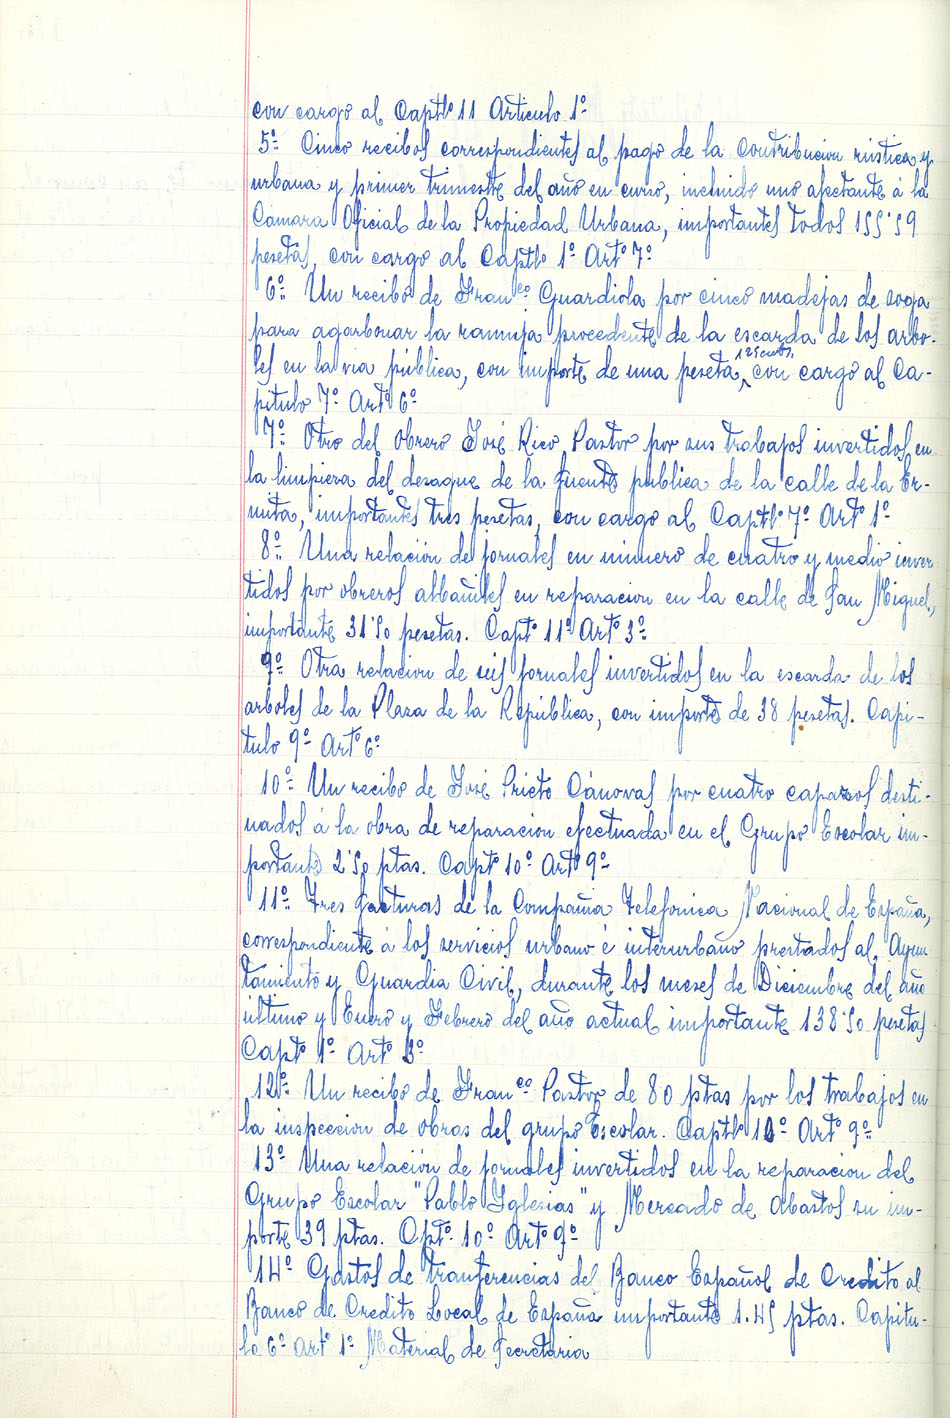 con cargo al Captlº 11 Articulo 1º
5º Cinco recibos correspondientes al pago de la Contribucion rústica y
urbana y primer trimestre del año en curso, incluido uno afectante á la
Cámara Oficial de la Propiedad Urbana, importantes todos 155'59
pesetas, con cargo al Captlº 1º Artº 7º
6º Un recibo de Franco Guardiola por cinco madejas de soga
para agarbonar la ramuja procedente de la escarda de los arbo-
les en la via pública, con importe de una peseta 125 cents, con cargo al Ca-
pitulo 7º Artº 6º
7º Otro del obrero José Rico Pastor por sus trabajos invertidos en
la limpieza del desague de la fuente pública de la calle de la Er-
mita, importantes tres pesetas, con cargo al Captlº 7º Artº 1º
8º Una relación de jornales en número de cuatro y medio inver
tidos por obreros albañiles en reparacion en la calle de San Miguel,
importante 31'50 pesetas. Captº 11º Artº 3º
9º Otra relacion de seis jornales invertidos en la escarda de los
arboles de la Plaza de la República, con importe de 38 pesetas. Capi-
tulo 9º Artº 6º
10º Un recibo de José Prieto Cánovas por cuatro capazos desti-
nados á la obra de reparacion efectuada en el Grupo Escolar im-
portante 2'50 ptas. Captº 10º Artº 9º
11º Tres facturas de la Compañia Telefonica Nacional de España,
correspondiente á los servicios urbano é interurbano prestados al Ayun
tamiento y Guardia Civil, durante los meses de Diciembre del año
último y Enero y Febrero del año actual importante 138'50 pesetas
Captº 1º Artº 3º
12º Un recibo de Franco Pastor de 80 ptas por los trabajos en
la inspeccion de obras del grupo Escolar. Captlº 10º Artº 9º
13º Una relación de jornales invertidos en la reparacion del
Grupo Escolar "Pablo Yglesias" y Mercado de Abastos su im-
porte 39 ptas. Cptº 10º Artº 9º
14º Gastos de tranferencias del Banco Español de Credito al
Banco de Credito Local de España importante 1.45 ptas. Capitu-
lo 6º Artº 1º Material de Secretaria